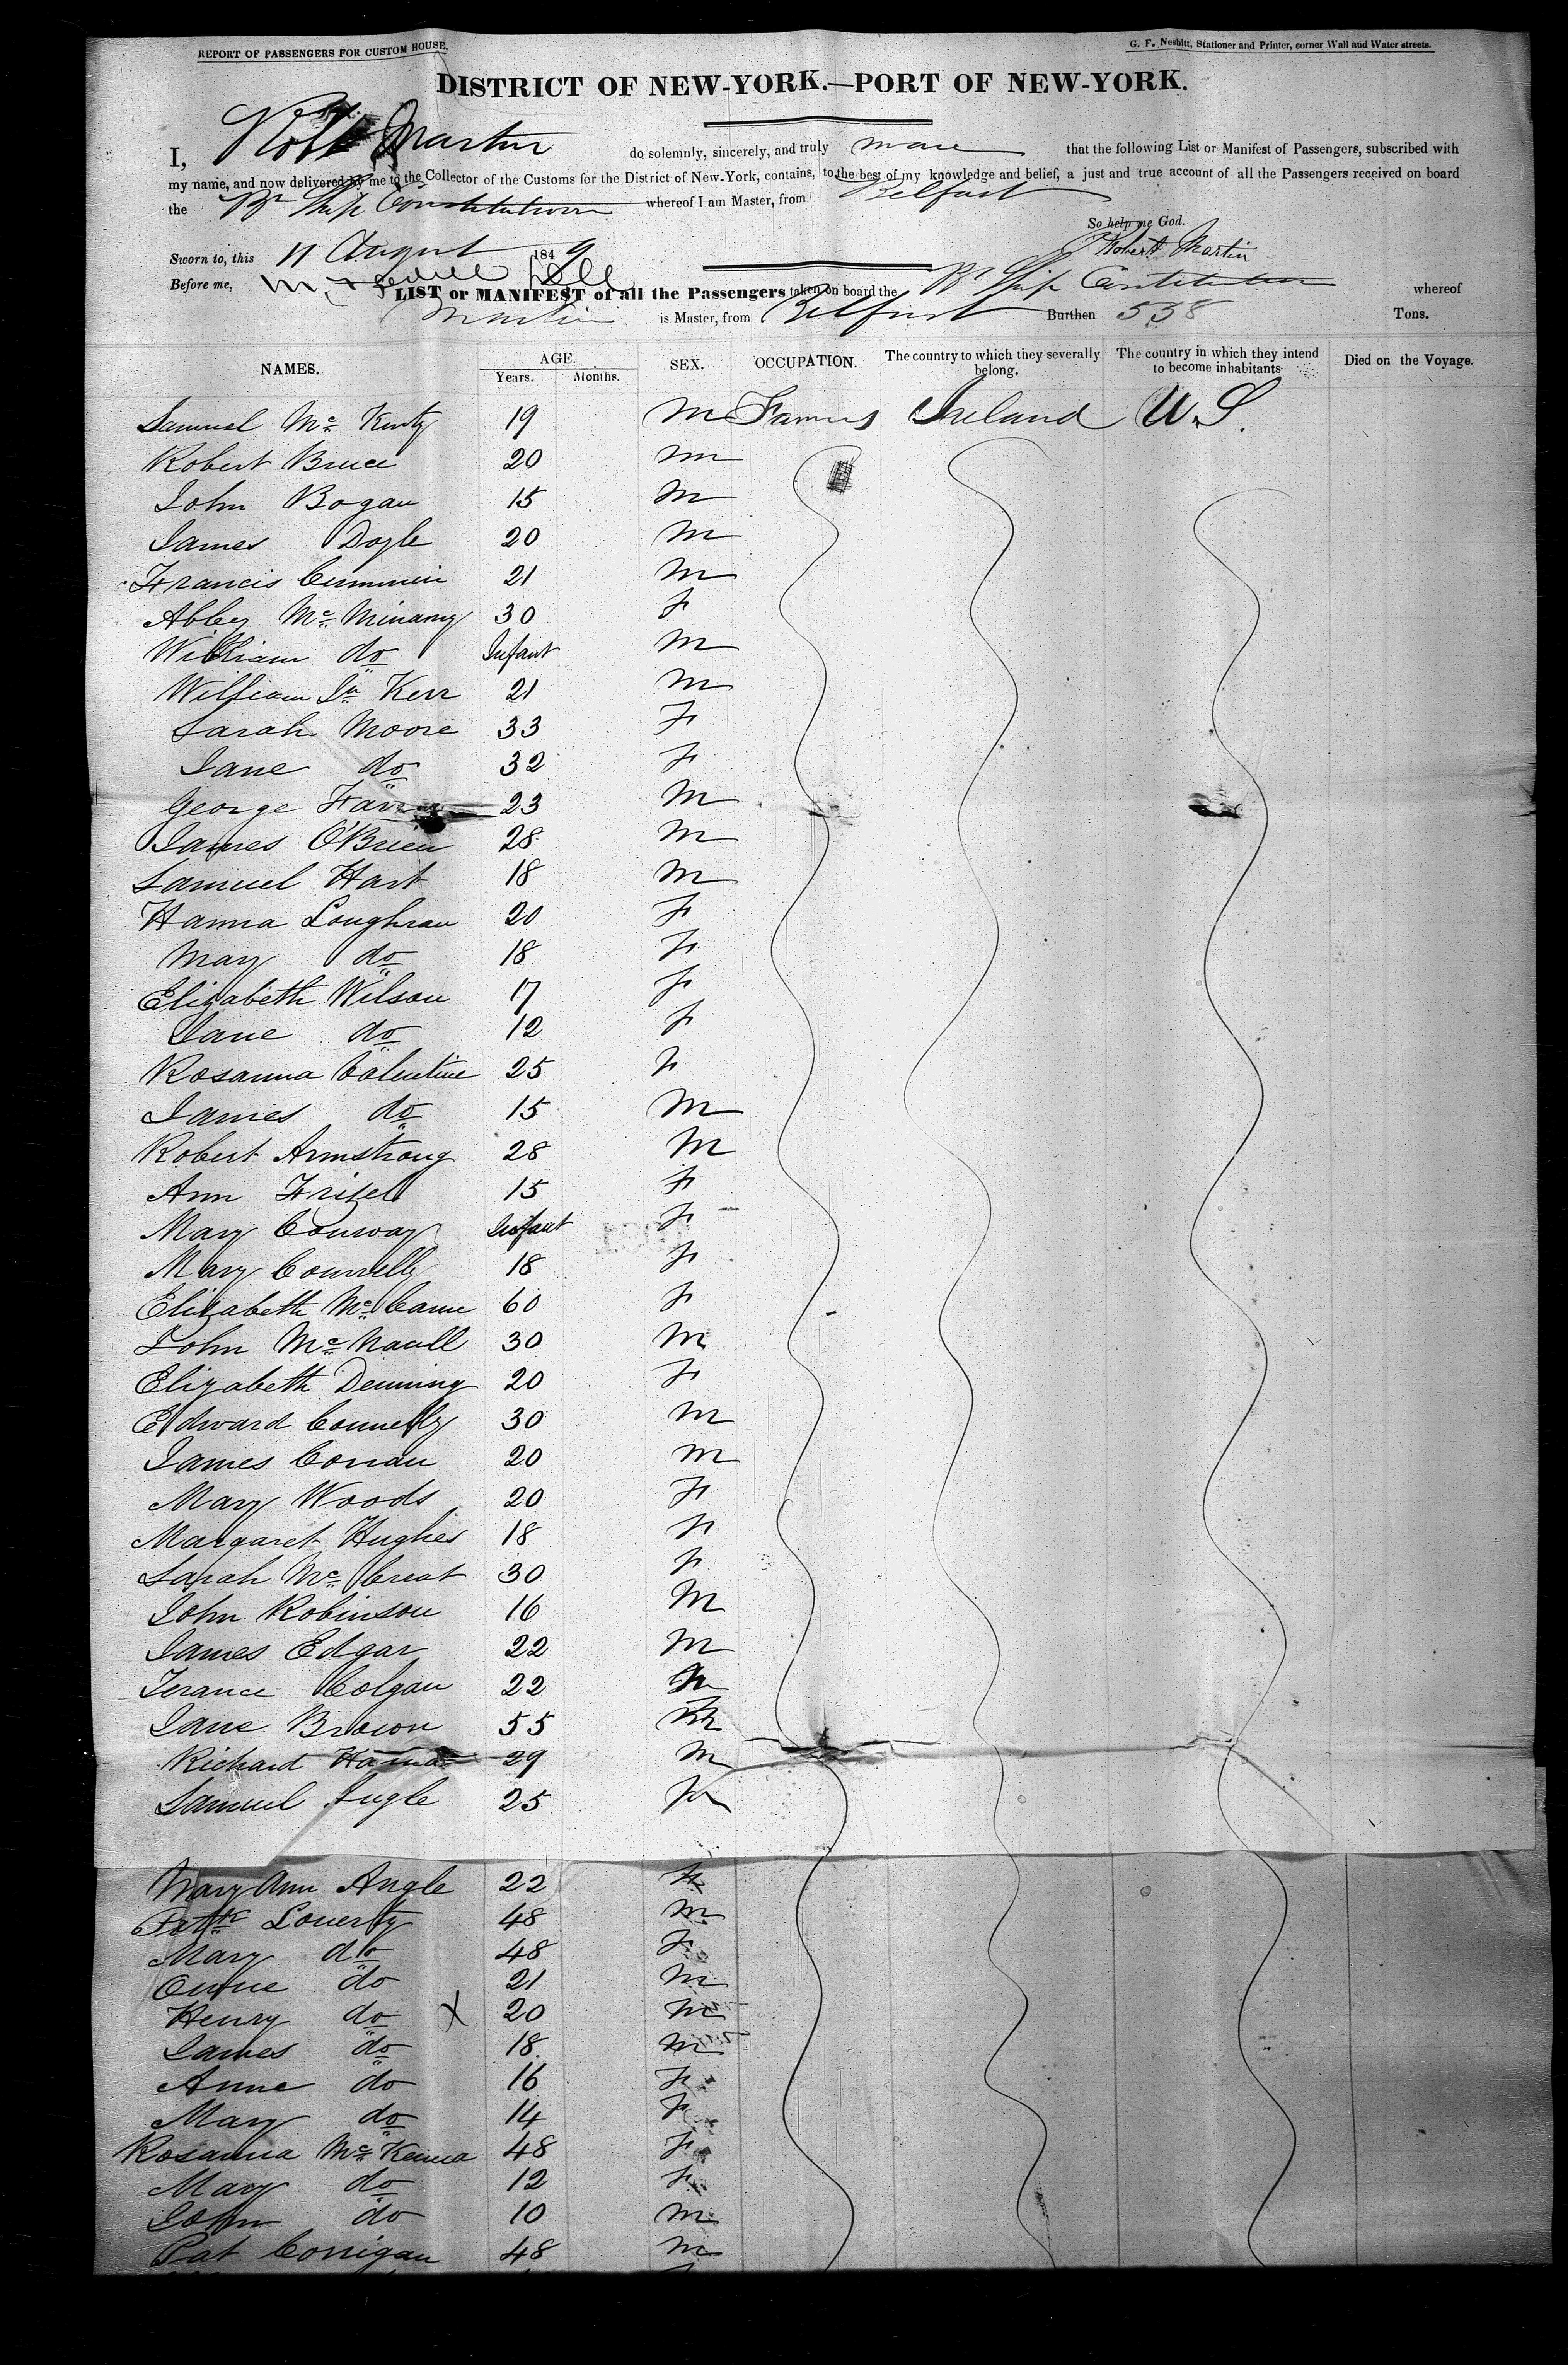 REPORT OF PASSENGERS FOR CUSTOM HOUSE.
G. F. Nesbitt, Stationer and Printer, corner Wall and Water streets.
DISTRICT OF NEW-YORK.—PORT OF NEW-YORK.
I, Robt Martin do solemnly, sincerely, and truly that the following List or Manifest of Passengers, subscribed with
my name, and now delivered by me to the Collector of the Customs for the District of New-York, contains, to the best of my knowledge and belief, a just and true account of all the Passengers received on board
the Br Ship Constitution whereof I am Master, from Belfast
So help me God.
Robert Martin
Sworn to, this 11 August 1849
Before me,
LIST or MANIFEST of all the Passengers taken on board the Br Ship Constitution whereof
Martin is Master, from Belfast Burthen 558 Tons.
NAMES. AGE. SEX. OCCUPATION. The country to which they severally belong. The country in which they intend to become inhabitants Died on the Voyage.
Years. Months.
Samuel Mc 19 M Ireland U.S.
Robert Bruce 20 m
John Bogan 15 M
James Doyle 20 M
Francis Cummin 21 M
Abbey Mc Minamy 30 F
William do Infant M
William Jn Kerr 21 M
Sarah Moore 33 F
Jane do 32 F
George 23 M
James O'Brien 28 M
Samuel Hart 18 M
Hanna Loughran 20 F
Mary do 18 F
Elizabeth Wilson 17 F
Jane do 12 F
Rosanna Valentine 25 F
James do 15 M
Robert Armstrong 28 M
Ann Frizel 15 F
Mary Conway Infant F
Mary Connelly 18 F
Elizabeth Mc Cann 60 F
John Mc Naull 30 M
Elizabeth Denning 20 F
Edward Connelly 30 M
James Conan 20 M
Mary Woods 20 F
Margaret Hughes 18 F
Sarah Mc Creat 30 F
John Robinson 16 M
James Edgar 22 M
Terance Colgan 22 M
Jane Brown 55
Richard Hanna 29 M
Samuel 25 M
Mary Ann Angle 22 F
Pattk Louerty 48 M
Mary do 48 F
do 21 M
Henry do X 20 M
James do 18 M
Anne do 16 F
Mary do 14 F
Rosanna Mc Kenna 48 F
Mary do 12 F
John do 10 M
Pat Corrigan 48 M